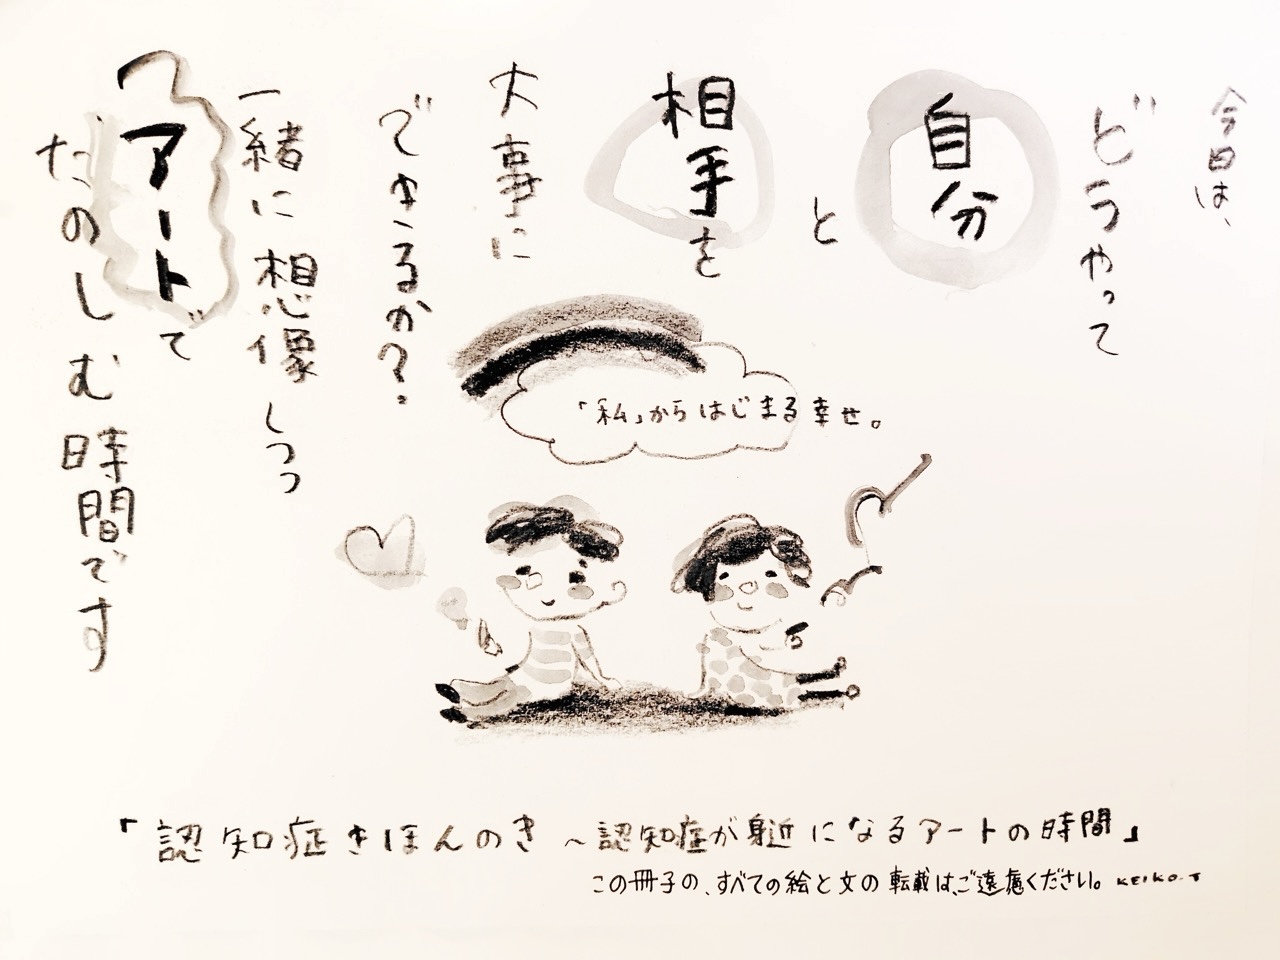 今日は、
どうやって
自分
と
相手を
大事に
できるか?
一緒に想像しつつ
アートで
たのしむ時間です
「私」からはじまる幸せ。
「認知症きほんのき ～認知症が身近になるアートの時間」
この冊子の、すべての絵と文の転載は、ご遠慮ください。 KEIKO.T